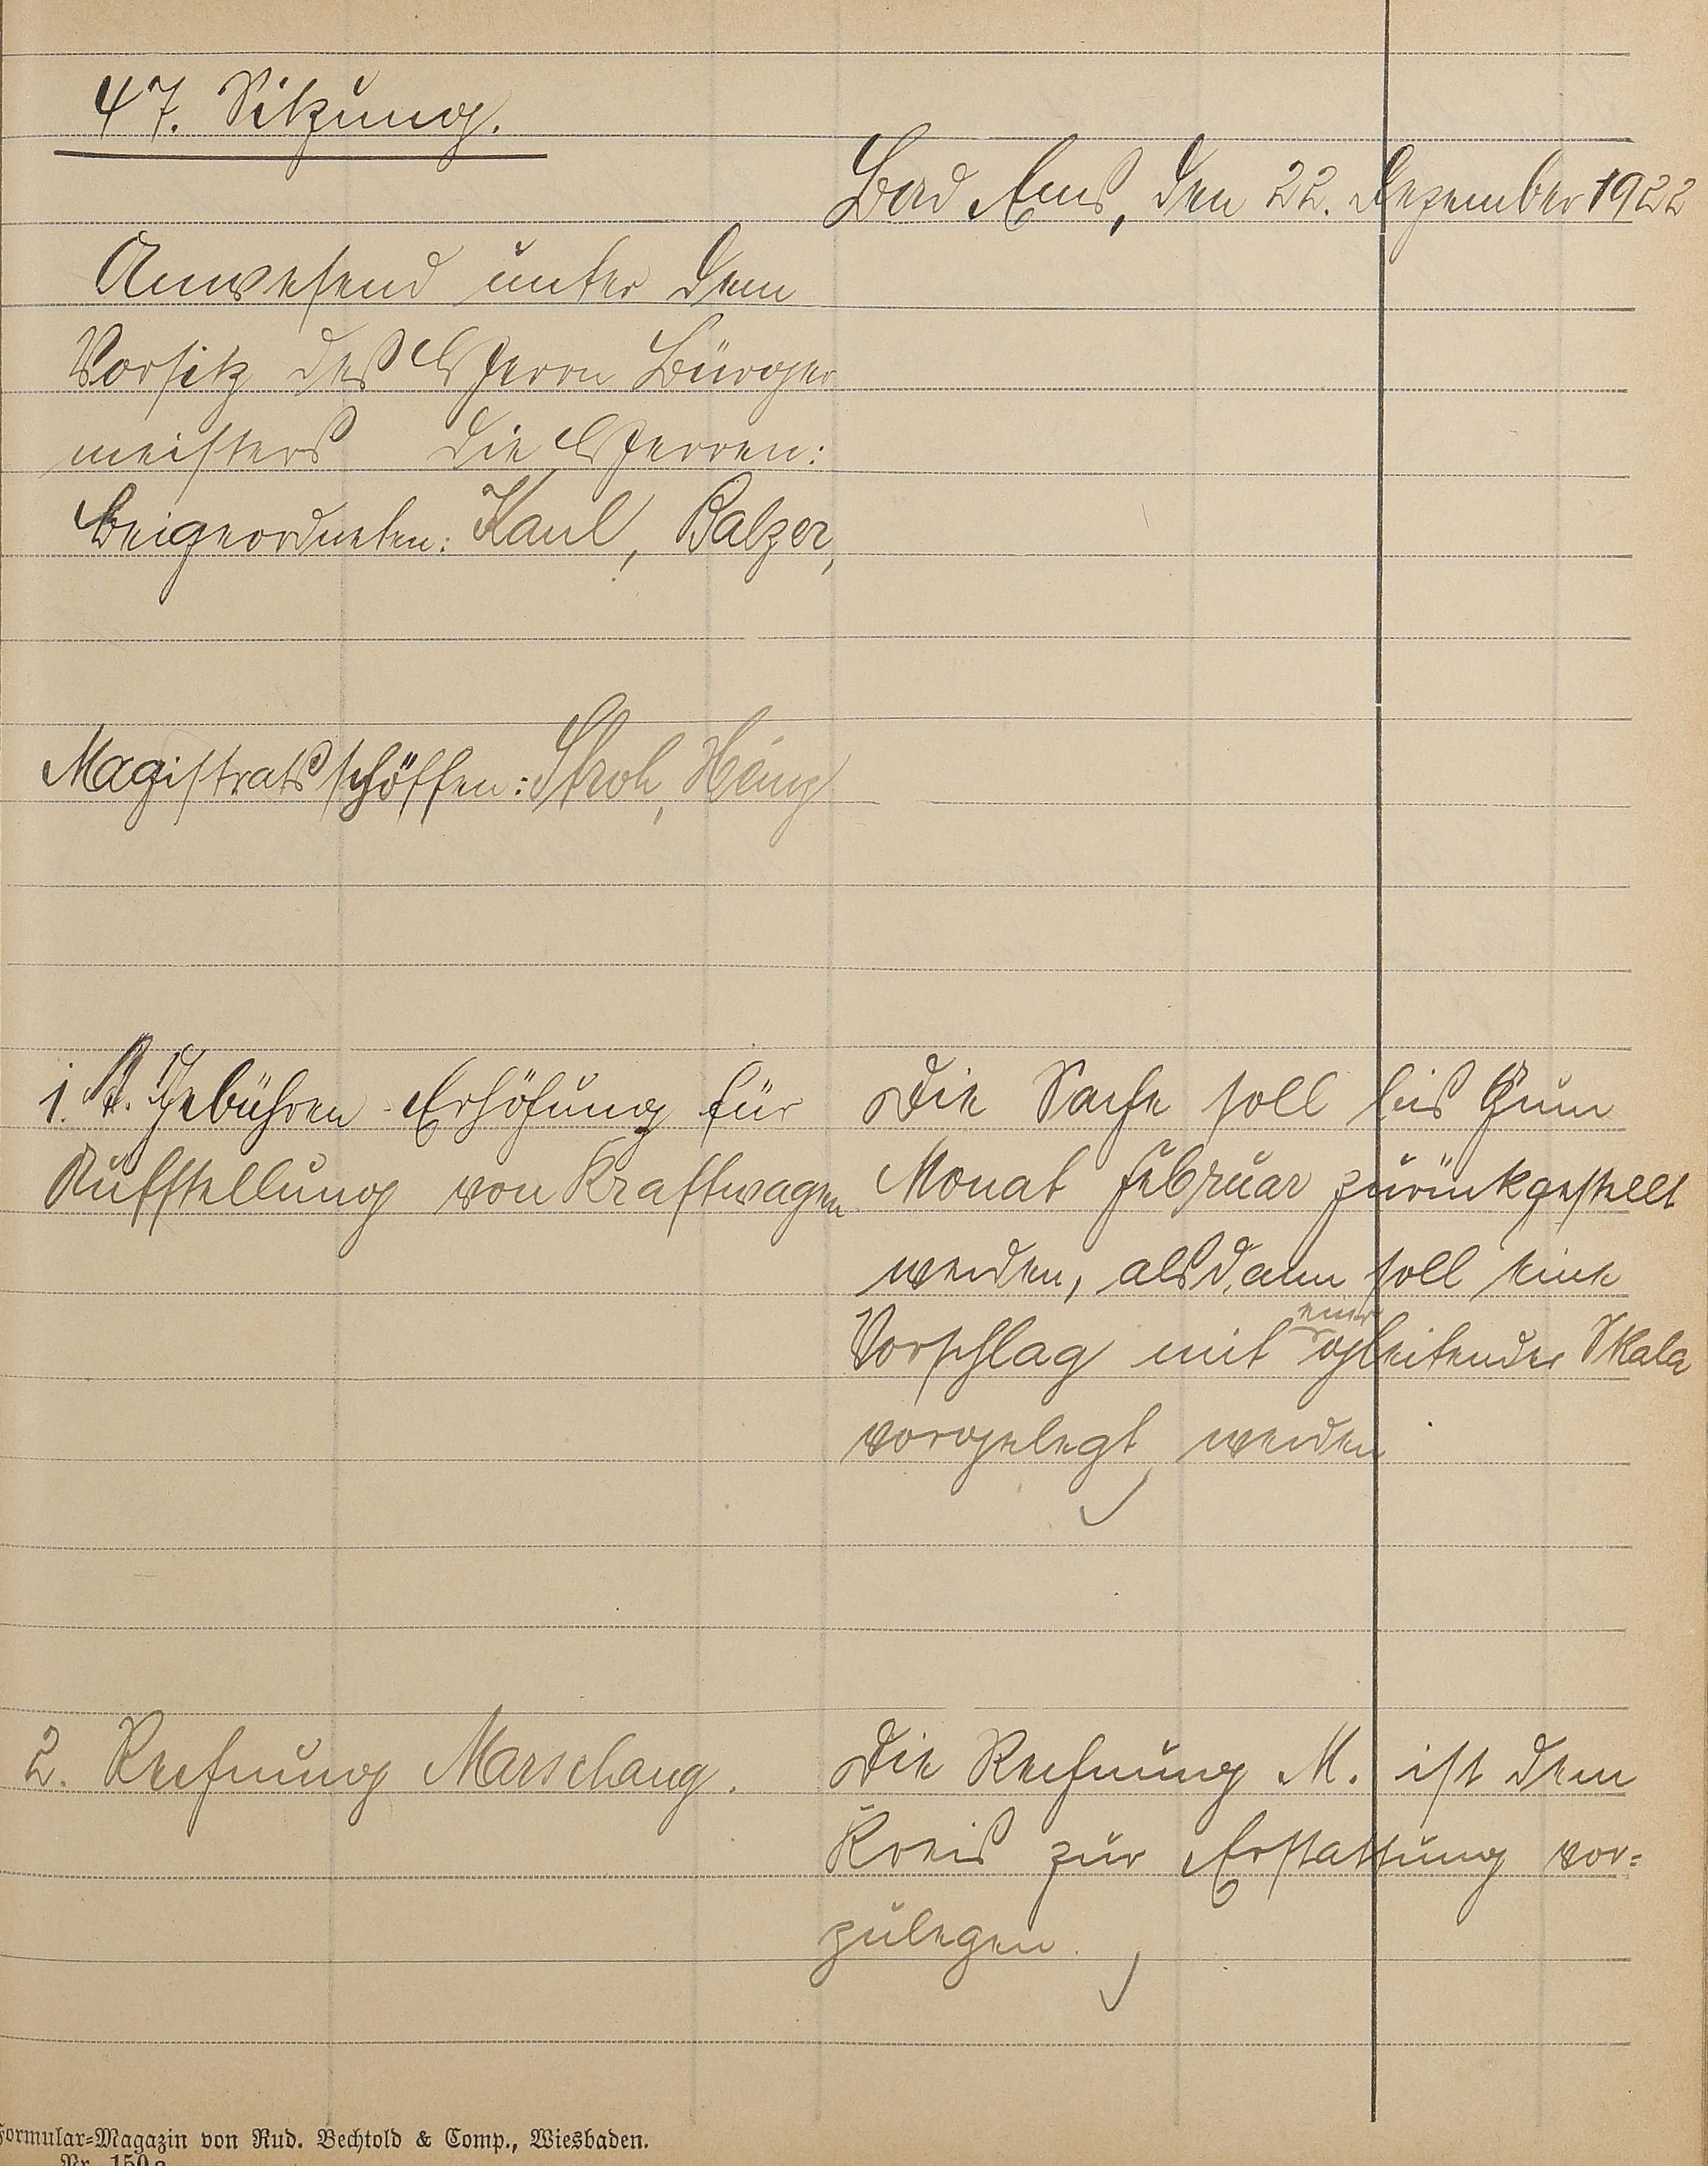 47. Sitzung.
Bad Ems, den 22. Dezember 1922
Anwesend unter dem
Vorsitz des Herrn Bürger
meisters die Herren:
Beigeordneten: Kaul, Balzer,
Magistratsschöffen: Stroh,
1. Gebühren-Erhöhung für
Aufstellung von Kraftwagen
Die Sache soll bis zum
Monat Februar zurückgestellt
werden, alsdann soll eine
Vorschlag mit einer gleitender Skala
vorgelegt werden
2. Rechnung Marschang.
Die Rechnung M. ist dem
Kreis zur Erstattung vor=
zulegen.
Formular=Magazin von Rud. Bechtold & Comp., Wiesbaden.
Nr. 150a